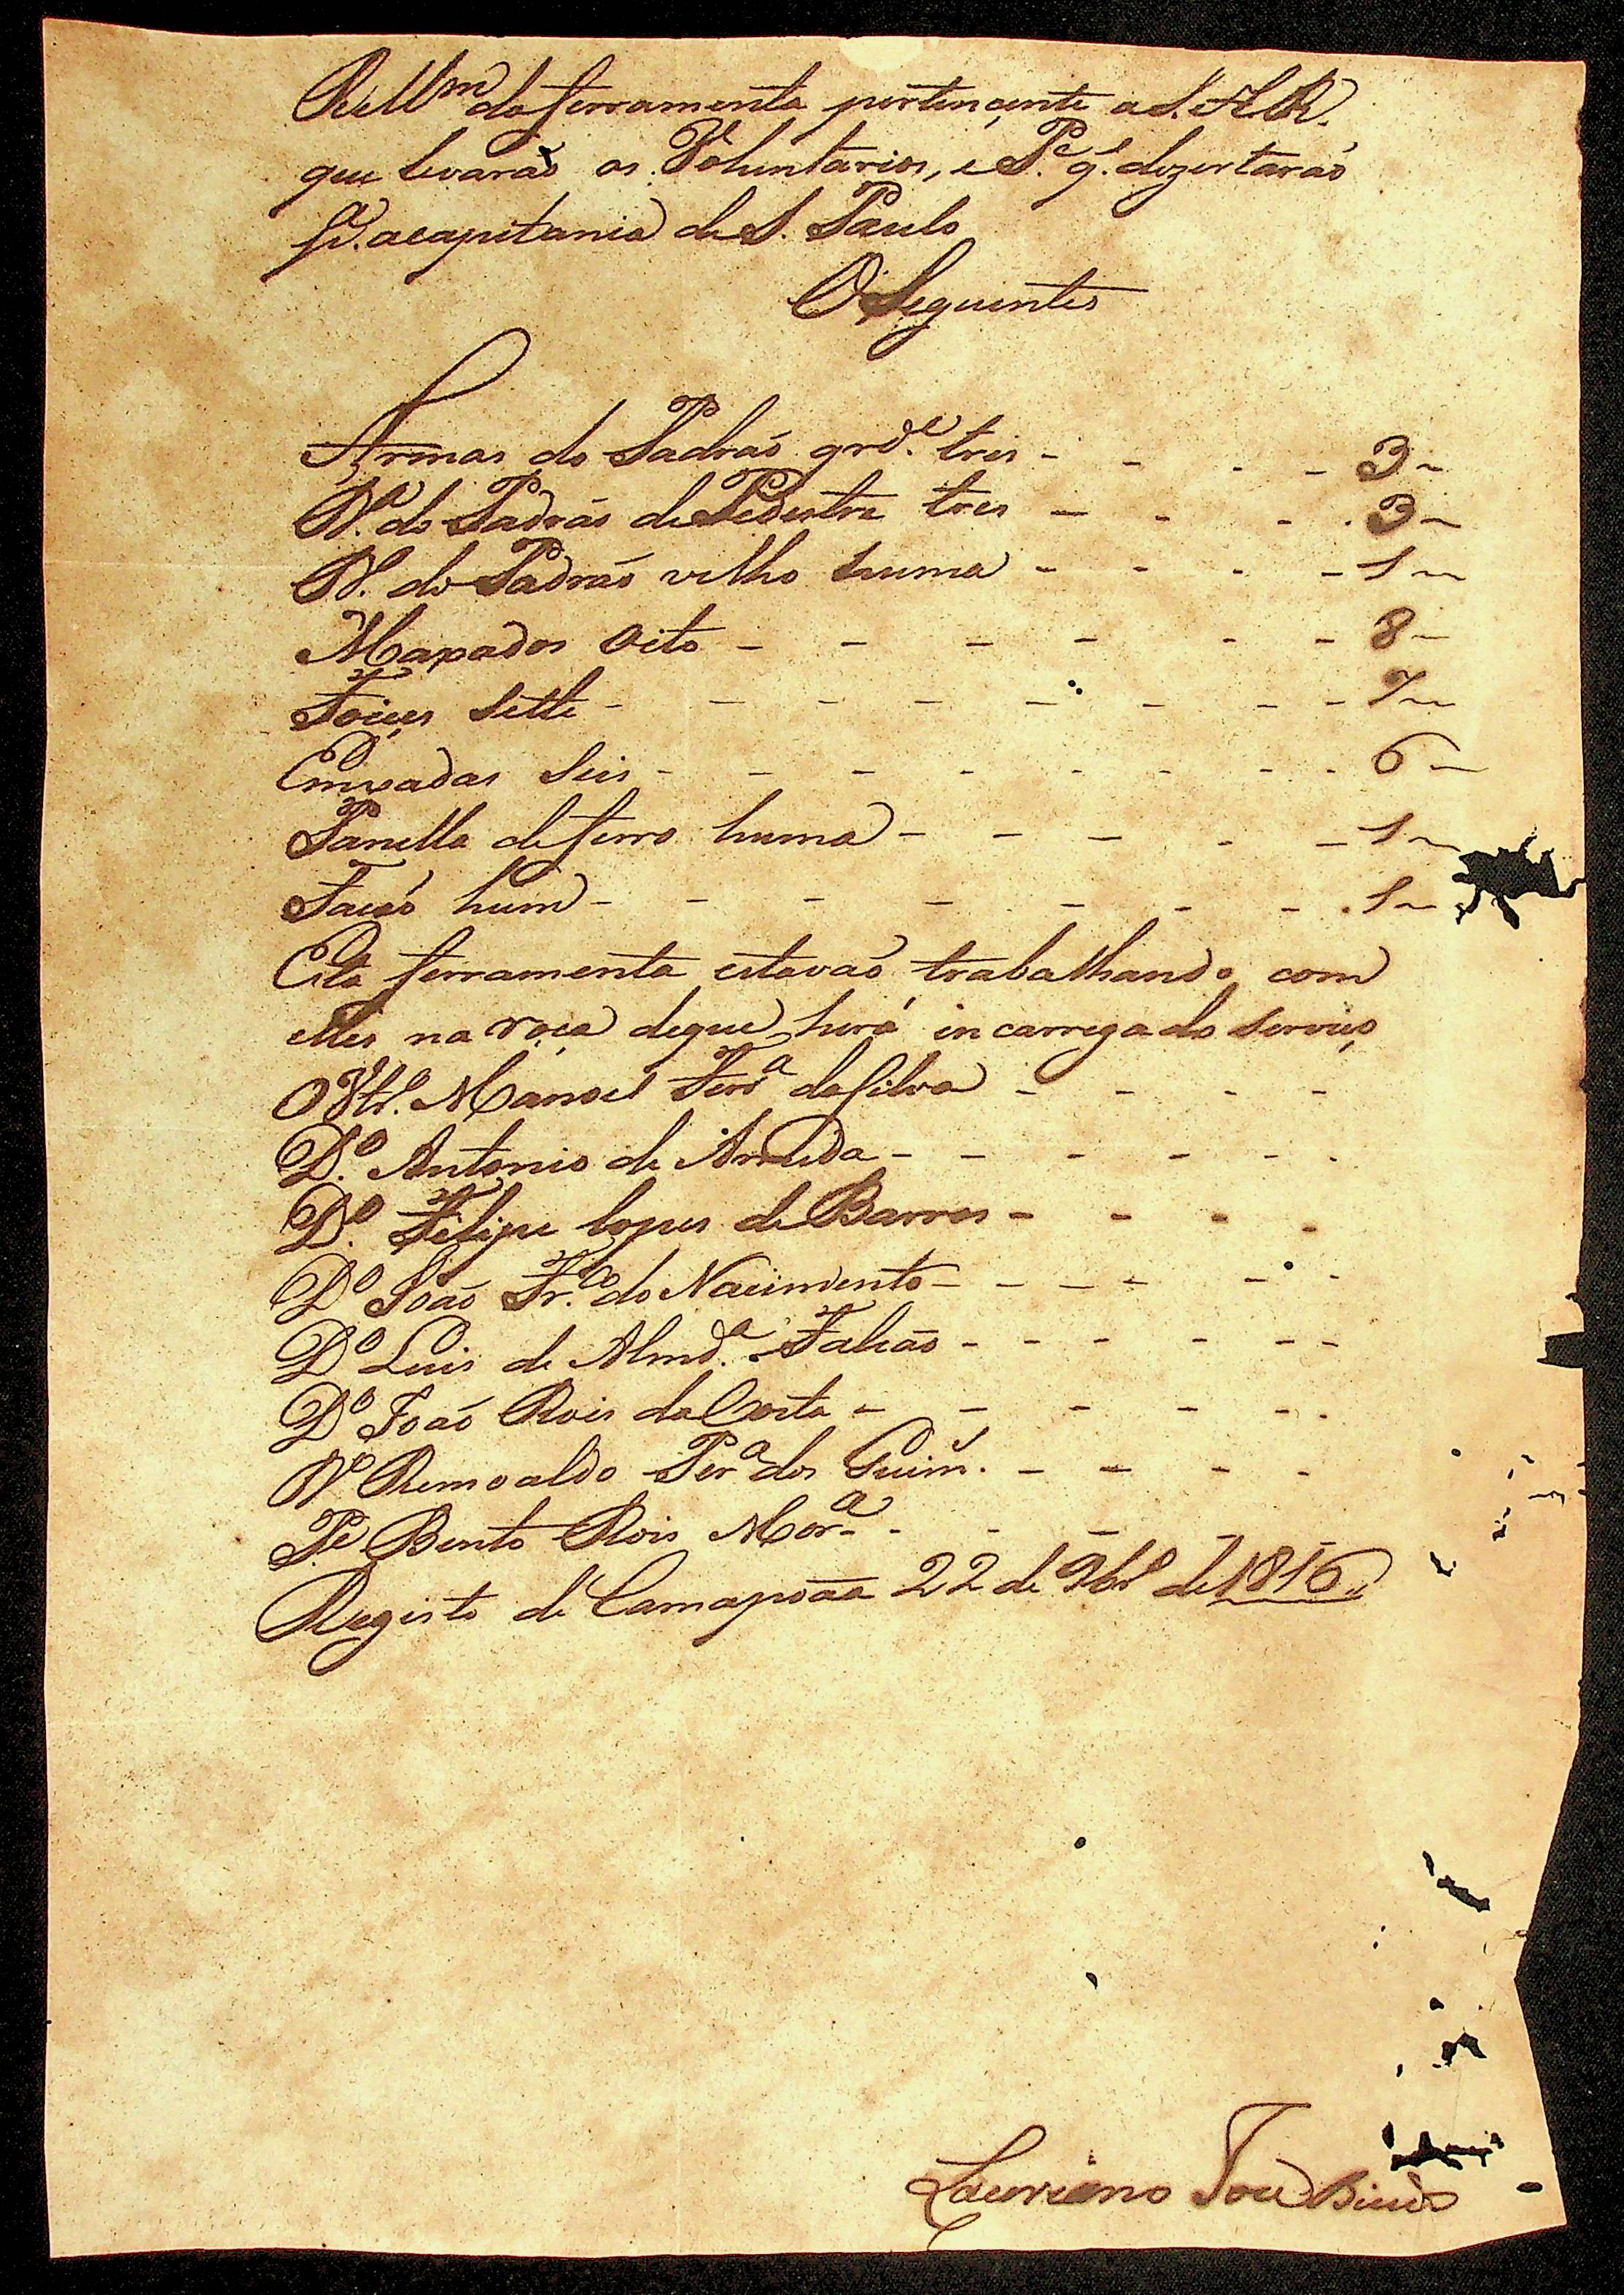 Rellm da ferramenta pertencente a S. A. R.
que levaraõ os Voluntarios, e P.e q̃. dezertaraõ
p.a a capitania de S. Paulo
O Seguentes
Armas do Padraõ grd.e tres - - - - 3
D.a do Padraõ de Pedestre tres - - - - 3
D. do Padraõ velho huma - - - - 1
Maxados oito - - - - - - 8
Foices Sette - - - - - - - - 7
Emxadas Seis - - - - - - - - 6
Panella de ferro huma - - - - - 1
Facaõ hum - - - - - - - 1
Esta ferramenta estavaõ trabalhando com
elles na roça deque hera incarregado Serviço
O Vtr.o Manoel Ferr.a da Silva - - - -
D.o Antonio de Arruda - - - - - -
D.o Felipe lopes de Barros - - - -
D.o Joaõ Fr.co do Nacimento - - - - - -
D.o Luis de Almd.a Falcaõ - - - - - -
D.o Joaõ Rois da Costa - - - - - -
D.o Remoaldo Per.a dos Guim. - - - -
P.e Bento Rois Mor.a - - - -
Registo de Camapoãa 22 de 9br.o de 1816
Lauriano Joze